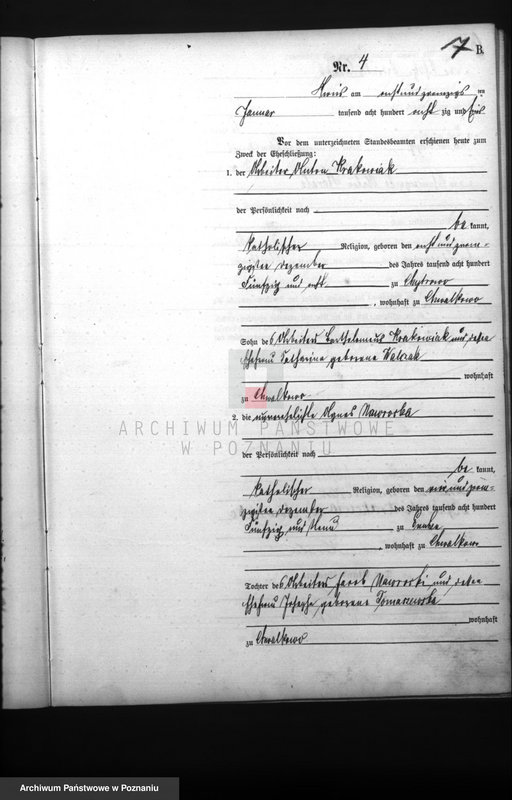 7 B.
Nr. 4
am acht und zwanzigsten
Januar tausend acht hundert acht zig und
Vor dem unterzeichneten Standesbeamten erschienen heute zum
Zweck der Eheschließung:
1. der Arbeiter Anton Krakowiak
der Persönlichkeit nach
be kannt,
katholischer Religion, geboren den acht und zwan-
zigsten Dezember des Jahres tausend acht hundert
fünfzig und acht zu
, wohnhaft zu Chwalkowo
Sohn des Arbeiters Bartholomeus Krakowiak und dessen
Ehefrau Catharina geborene Walczak
wohnhaft
zu Chwalkowo
2. die unverehelichte Agnes Nawrocka
der Persönlichkeit nach
be kannt,
katholischer Religion, geboren den vier und zwan-
zigsten Dezember des Jahres tausend acht hundert
fünfzig und neun zu
, wohnhaft zu Chwalkowo
Tochter des Arbeiters Jacob Nawrocki und dessen
Ehefrau Josepha geborene Tomaszewska
wohnhaft
zu Chwalkowo
ARCHIWUM PAŃSTWOWE
W POZNANIU
Archiwum Państwowe w Poznaniu